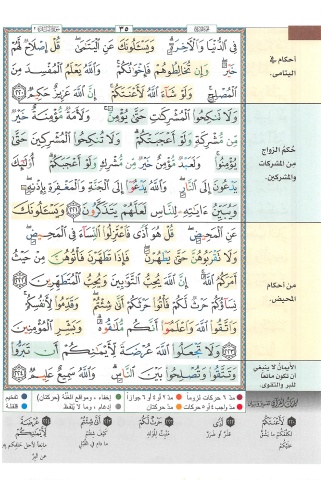 ٣٥
فِي الدُّنْيَا وَالْآخِرَةِ ۗ وَيَسْأَلُونَكَ عَنِ الْيَتَامَىٰ ۖ قُلْ إِصْلَاحٌ لَهُمْ
خَيْرٌ ۖ وَإِنْ تُخَالِطُوهُمْ فَإِخْوَانُكُمْ ۚ وَاللَّهُ يَعْلَمُ الْمُفْسِدَ مِنَ
الْمُصْلِحِ ۚ وَلَوْ شَاءَ اللَّهُ لَأَعْنَتَكُمْ ۚ إِنَّ اللَّهَ عَزِيزٌ حَكِيمٌ ٢٢٠
وَلَا تَنْكِحُوا الْمُشْرِكَاتِ حَتَّىٰ يُؤْمِنَّ ۚ وَلَأَمَةٌ مُؤْمِنَةٌ خَيْرٌ
مِنْ مُشْرِكَةٍ وَلَوْ أَعْجَبَتْكُمْ ۗ وَلَا تُنْكِحُوا الْمُشْرِكِينَ حَتَّىٰ
يُؤْمِنُوا ۚ وَلَعَبْدٌ مُؤْمِنٌ خَيْرٌ مِنْ مُشْرِكٍ وَلَوْ أَعْجَبَكُمْ ۗ أُولَٰئِكَ
يَدْعُونَ إِلَى النَّارِ ۖ وَاللَّهُ يَدْعُو إِلَى الْجَنَّةِ وَالْمَغْفِرَةِ بِإِذْنِهِ ۖ
وَيُبَيِّنُ آيَاتِهِ لِلنَّاسِ لَعَلَّهُمْ يَتَذَكَّرُونَ ٢٢١ وَيَسْأَلُونَكَ
عَنِ الْمَحِيضِ ۖ قُلْ هُوَ أَذًى فَاعْتَزِلُوا النِّسَاءَ فِي الْمَحِيضِ ۖ
وَلَا تَقْرَبُوهُنَّ حَتَّىٰ يَطْهُرْنَ ۖ فَإِذَا تَطَهَّرْنَ فَأْتُوهُنَّ مِنْ حَيْثُ
أَمَرَكُمُ اللَّهُ ۚ إِنَّ اللَّهَ يُحِبُّ التَّوَّابِينَ وَيُحِبُّ الْمُتَطَهِّرِينَ ٢٢٢
نِسَاؤُكُمْ حَرْثٌ لَكُمْ فَأْتُوا حَرْثَكُمْ أَنَّىٰ شِئْتُمْ ۖ وَقَدِّمُوا لِأَنْفُسِكُمْ ۚ
وَاتَّقُوا اللَّهَ وَاعْلَمُوا أَنَّكُمْ مُلَاقُوهُ ۗ وَبَشِّرِ الْمُؤْمِنِينَ
٢٢٣ وَلَا تَجْعَلُوا اللَّهَ عُرْضَةً لِأَيْمَانِكُمْ أَنْ تَبَرُّوا
وَتَتَّقُوا وَتُصْلِحُوا بَيْنَ النَّاسِ ۗ وَاللَّهُ سَمِيعٌ عَلِيمٌ ٢٢٤
أحكام في
اليتامى.
حُكمُ الزواج
من المشركات
والمشركين.
من أحكام
المحيض.
الأيمانُ لا ينبغي
أن تكون مانعاً
للبر والتقوى.
مدّ ٦ حركات لزوماً
مدّ ٢ أو ٤ أو ٦ جوازاً
إخفاء، ومواقع الغنّة (حركتان)
تفخيم
مدّ واجب ٤ أو ٥ حركات
مدّ حركتان
إدغام، وما لا يُلفظ
قلقلة
لَأَعْنَتَكُمْ
لكلّفكم ما يشقّ
عليكم
أَذًى
حَرْثٌ لَكُمْ
أَنَّىٰ شِئْتُمْ
كيف شئتم
عُرْضَةً
لِأَيْمَانِكُمْ